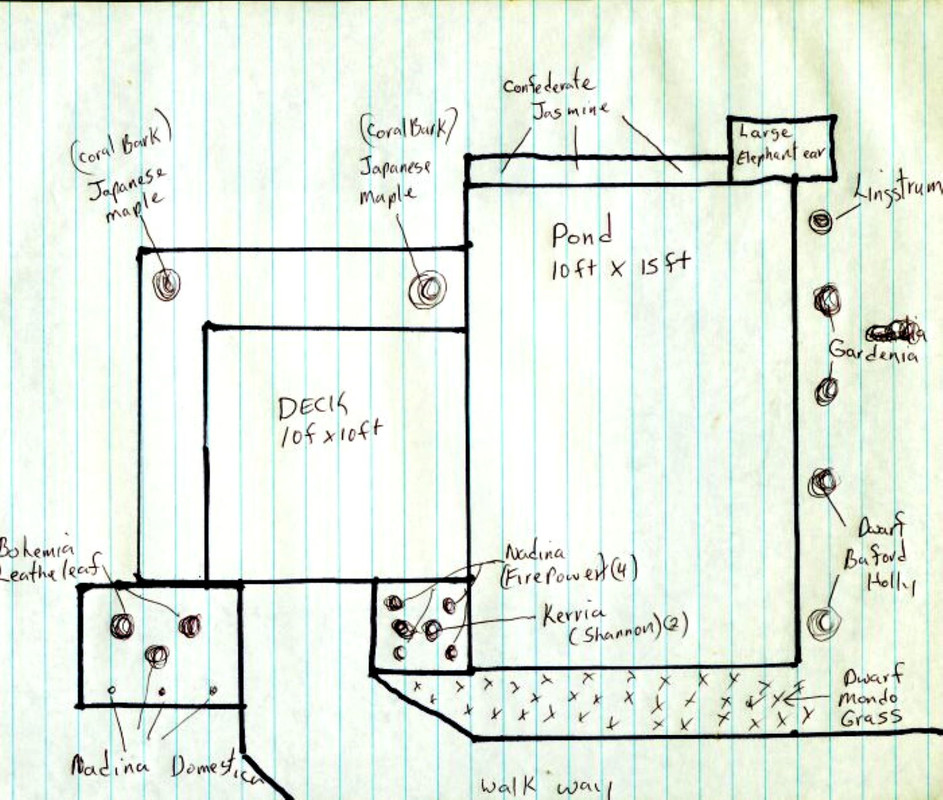 Confederate
Jasmine
(Coral Bark)
Japanese
maple
(Coral Bark)
Japanese
maple
Large
Elephant ear
Lingstrum
Pond
10ft X 15ft
Gardenia
DECK
10f x10ft
Bohemia
Leatheleaf
Nadina
(FirePower)(4)
Kerria
(Shannon)(2)
Dwarf
Baford
Holly
Dwarf
Mondo
Grass
Nadina Domestica
Walk way